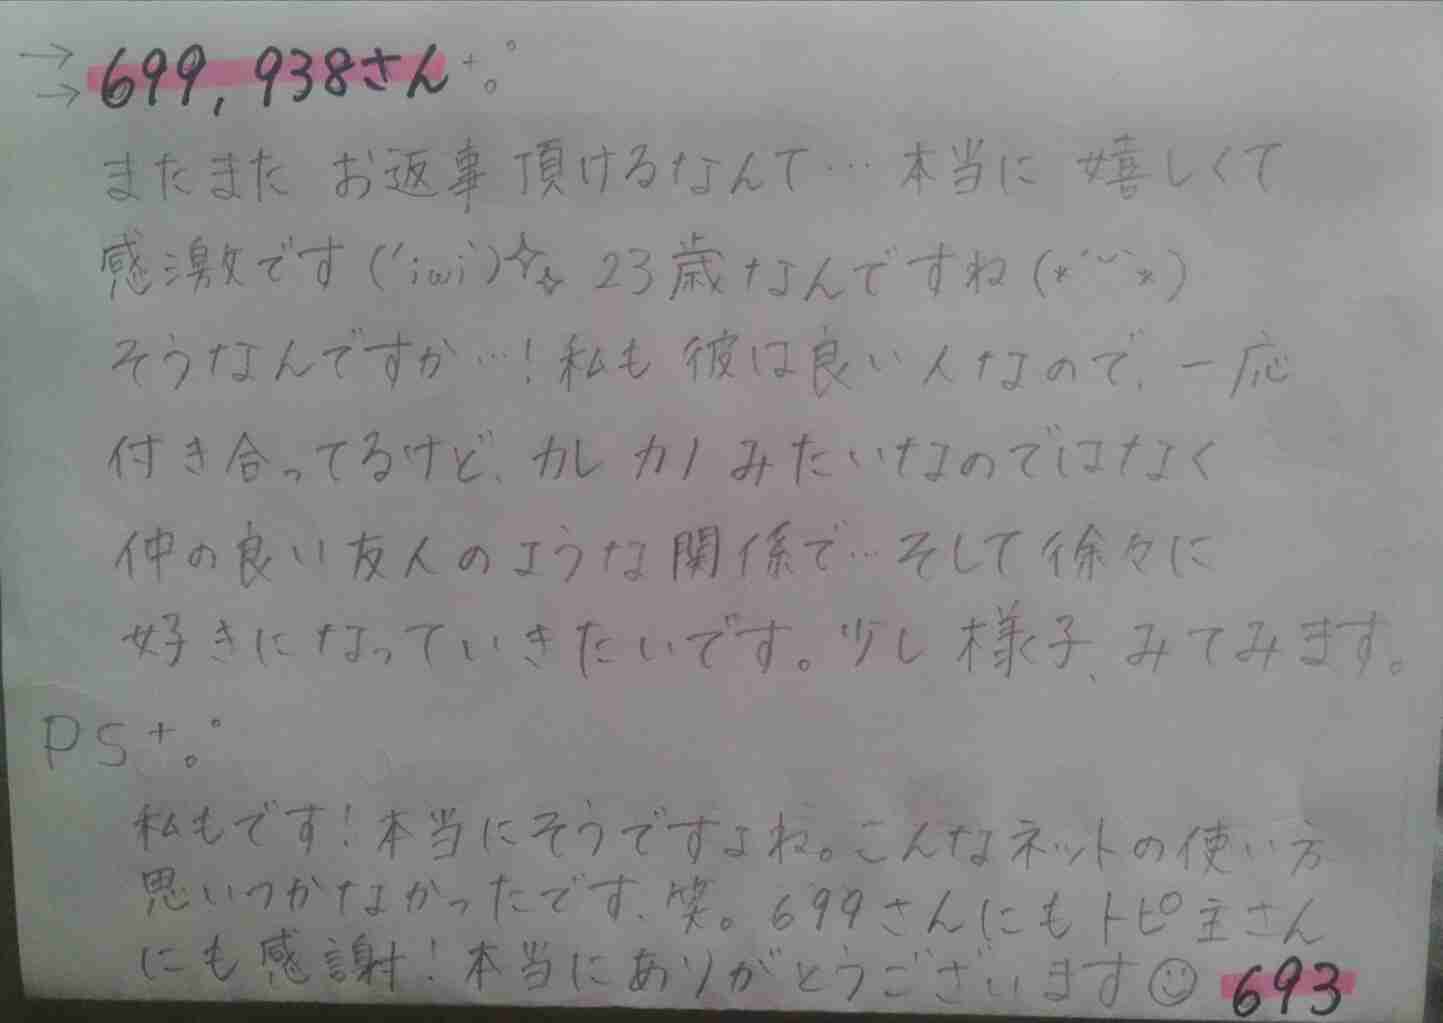 → 699, 938さん+。°
→
またまた お返事 頂けるなんて… 本当に 嬉しくて
感激です(´;ω;)✧˖ 23歳なんですね(*´˘`*)
そうなんですか…! 私も 彼は良い人なので、一応
付き合ってるけど、カレカノみたいなのではなく
仲の良い友人のような関係で…そして徐々に
好きになっていきたいです。少し様子、みてみます。
PS+。°
私もです! 本当にそうですよね。こんなネットの使い方
思いつかなかったです、笑。699さんにもトピ主さん
にも感謝! 本当にありがとうございます☺ 693